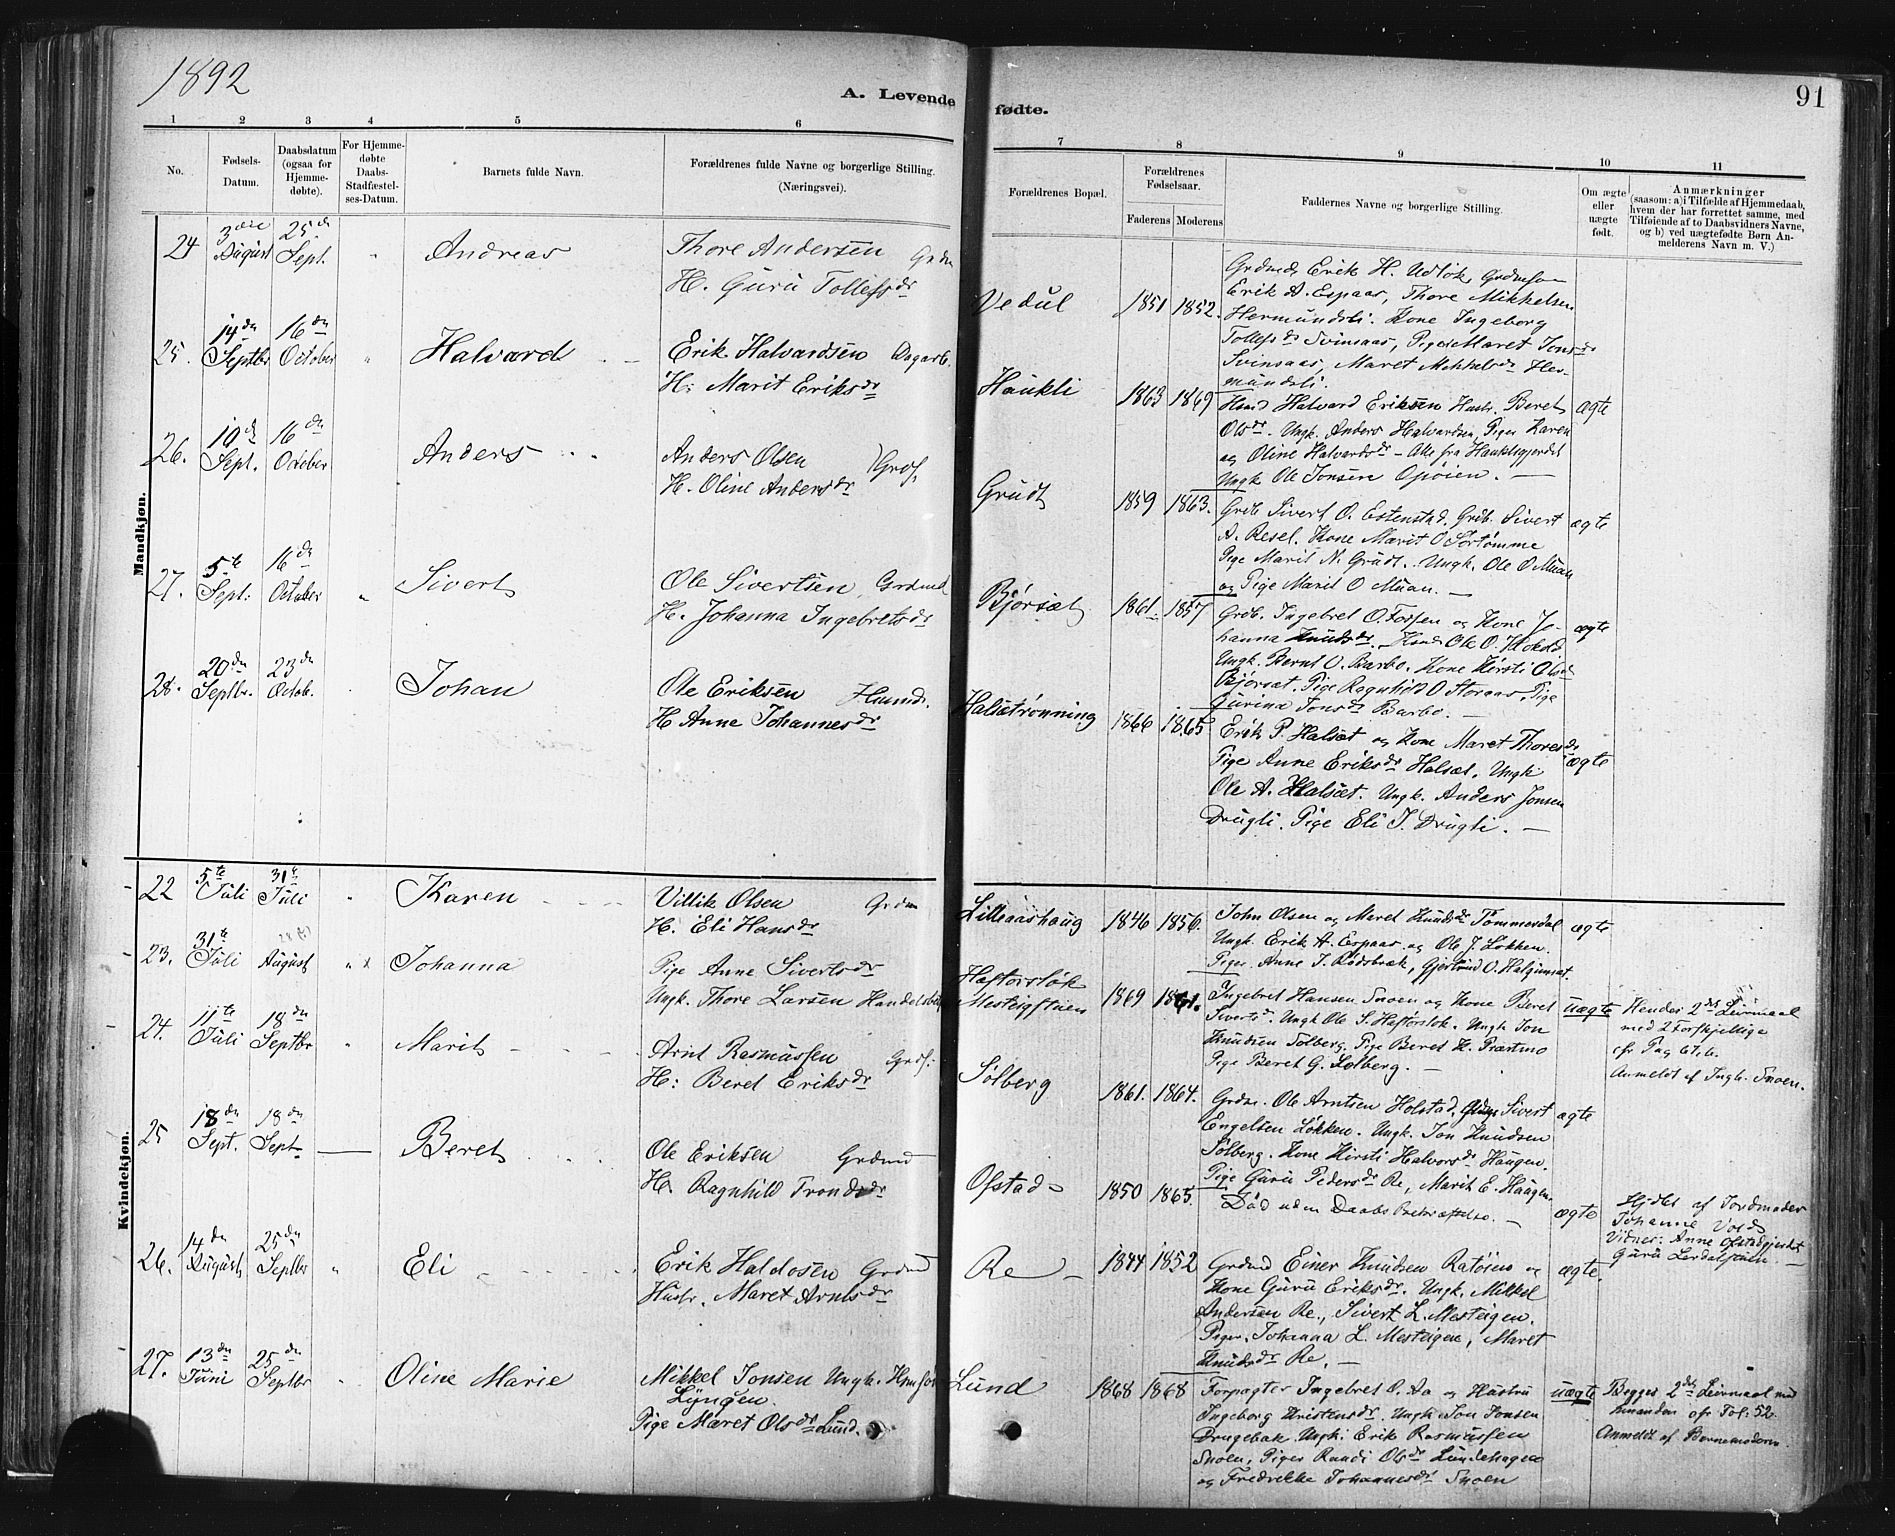 1892
A. Levende fødte.
91
1 2 3 4 5 6 7 8 9 10 11
No.
Fødsels-
Datum.
Daabsdatum
(ogsaa for
Hjemme-
døbte).
For Hjemme-
døbte
Daabs-
Stadfæstel-
ses-Datum.
Barnets fulde Navn.
Forældrenes fulde Navne og borgerlige Stilling.
(Næringsvei).
Forældrenes Bopæl.
Forældrenes
Fødselsaar.
Faderens Moderens
Faddernes Navne og borgerlige Stilling.
Om ægte
eller
uægte
født.
Anmærkninger
(saasom: a) i Tilfælde af Hjemmedaab,
hvem der har forrettet samme, med
Tilføiende af to Daabsvidners Navne,
og b) ved uægtefødte Børn An-
melderens Navn m. V.)
Mandkjøn.
24 3die August 25de Sept. " Andreas
Thore Andersen Grdm
H. Guru Tollefsdr
Vedul 1851 1852.
Grdmd Erik H. Udløk, Grdm
Erik A. Espaas, Thore Mikkelsen
Hermundsli. Kone Ingeborg
Tollefsdr Svinsaas, Piger Maret Jonsdr
Svinsaas, Maret Mikkelsdr Her-
mundsli.
25. 14de Septbr 16de October " Halvard
Erik Halvardsen Dagarb.
H: Marit Eriksdr
Haukli 1863 1869 ægte
Hmd Halvard Eriksen Hustr. Beret
Olsdr. Ungk. Anders Halvardsen, Piger Karen
og Oline Halvardsdr – Alle fra Haukligjerdet
Ungk Ole Jonsen
26. 10de Sept. 16de October Anders
Anders Olsen
H. Oline Andersdr
Grudt 1859 1863. ægte
Grdb Sivert O. Estenstad. Grdb. Sivert
A. Resel. Kone Marit O Sørtømme
Pige Marit N. Grudt. Ungk. Ole O Muan
og Pige Marit O Muan. –
27. 5te Sept. 16de October " Sivert
Ole Sivertsen, Grdmd
H. Johanna Ingebretsdr
Bjørsæt 1861. 1857 ægte
Grdb. Ingebret O. Fossen og Kone Jo-
hanna Knudsdr. Hmd Ole O.
Ungk. Bernt O. Barbo. Kone Kirsti Olsdr
Bjørsæt. Pige Ragnhild O Storaas, Pige
Gurina Jonsdr Barbo. –
28. 20de Septbr. 23de Octob. Johan
Ole Eriksen Husmd.
H Anne Johannesdr
Halsætrønning 1866 1865 ægte
Erik P. Halsæt og Kone Maret Thoresdr
Pige Anne Eriksdr Halsæt. Ungk
Ole A. Halsæt. Ungk. Anders Jonsen
Drugli. Pige Eli J. Drugli. –
Kvindekjøn.
22 5te Juli 31te Juli " Karen
Villik Olsen Grdm
H. Eli Hansdr
Lilleaashaug 1846 1856. ægte
John Olsen og Maret Knudsdr Tømmerdal
Ungk. Erik A. Espaas og Ole J. Løkken.
Piger. Anne J. Rødsbræk, Gjertrud O. Halgunset.
23. 31te Juli 28 August " x Johanna
Pige Anne Sivertsdr
Ungk. Thore Larsen
Haftorsløk
1869 1861. uægte
Ingebret Hansen Snoen og Kone Beret
Sivertsdr. Ungk Ole S. Haftorsløk. Ungk Jon
Knudsen Solberg. Pige Beret H. Præstmo
Pige Beret G. Solberg. –
Hendes 2det Leiermaal
med 2 Forskjellige
cfr Pag 67, 6.
Anmeldt af Ingb. Snoen.
24. 11te Juli 18de Septbr " Marit
Arnt Rasmussen
H: Beret Eriksdr
Solberg 1861. 1864. ægte
Grdm. Ole Arntsen Holstad, Sivert
Engelsen Løkken. Ungk. Jon Knudsen
Solberg. Kone Kirsti Halvorsdr Haugen.
Pige Guru Pedersdr Re, Marit E. Haugen.
25 18de Sept. 18de Sept. — Beret
Ole Eriksen Grdmd
H. Ragnhild Trondsdr
Ofstad 1850 1865. ægte
Død uden Daabs Bekræftelse. –
Hjdbt af Jordmoder
Johanne Vold
Vidner: Anne Ofstadgjerdet
Guru Lerdalstuen. –
26. 14de August 25de Septbr " Eli
Erik Haldosen Grdmd
Hustr. Maret Arntsdr
Re – 1844 1852 ægte.
Grdmd Einer Knudsen Ratøien og
Kone Guru Eriksdr. Ungk. Mikkel
Andersen Re., Sivert L. Mesteigen.
Piger. Johanna L. Mesteigen, Maret
Knudsdr Re. –
27. 13de Juni 25de Septbr " Oline Marie
Mikkel Jonsen Ungk.
Lyngen.
Pige Maret Olsdr Lund.
Lund 1868 1868 uægte
Forpagter Ingebret O. Aa og Hustru
Ingeborg Kristensdr. Ungk Jon Jonsen
Drugebak. Ungk. Erik Rasmussen
Snoen, Piger Randi Olsdr Lundehagen
og Fredrikke Johannesdr Snoen
Begges 2det Leiermaal med
hinanden cfr Fol: 52.
Anmeldt af Barnemoderen.